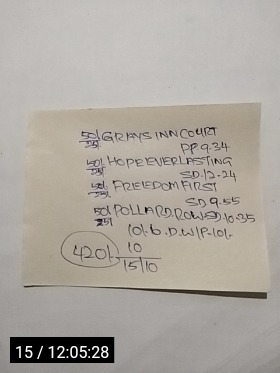 50/ GRAYS INN COURT
25/ PP. 9.34
50/ HOPE EVERLASTING
25/ SD. 12-24
50/ FREEDOM FIRST
25/ SD 9.55
50/ POLLARD. ROW SD 10.35
25/
10/- 6. D.W/P-10/-
10
420/- 15/10
15 / 12:05:28